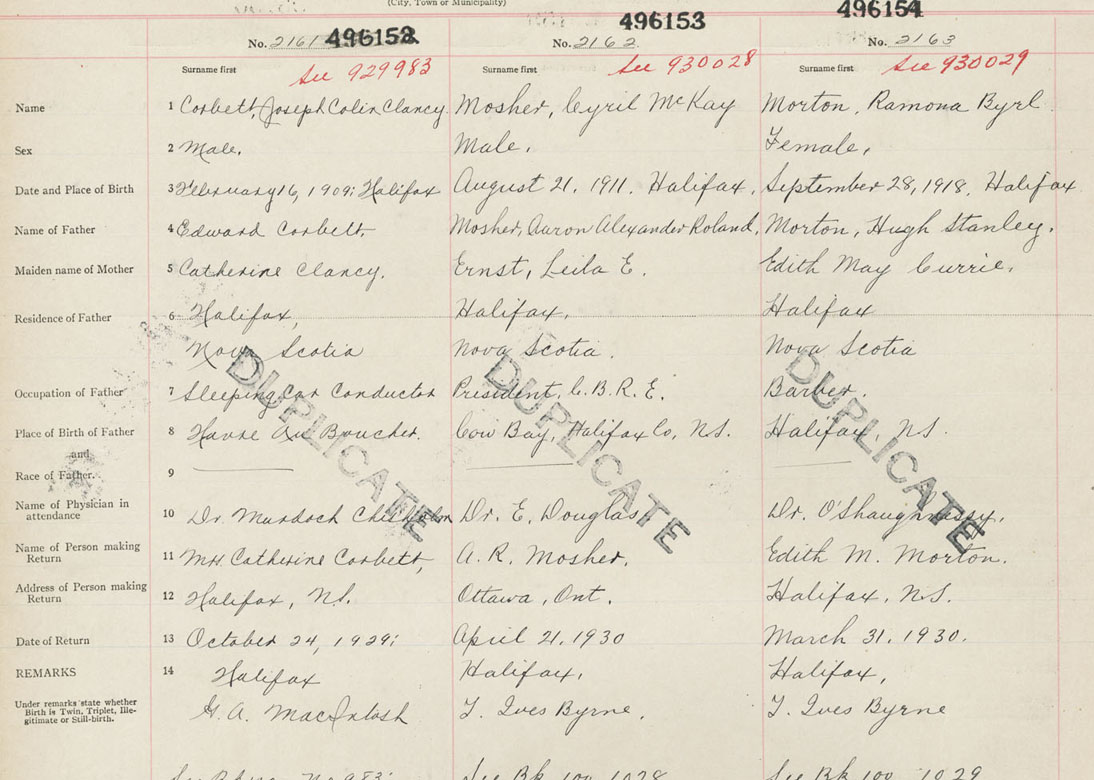 (City, Town or Municipality)
496152 496153 496154
No. 2161 No. 2162 No. 2163
Surname first See 929983 Surname first See 930028 Surname first See 930029
Name 1 Corbett, Joseph Colin Clancy. Mosher, Cyril McKay Morton, Ramona Byrl
Sex 2 Male. Male. Female.
Date and Place of Birth 3 February 16, 1909; Halifax August 21, 1911. Halifax. September 28, 1918. Halifax
Name of Father 4 Edward Corbett. Mosher, Aaron Alexander Roland. Morton, Hugh Stanley.
Maiden name of Mother 5 Catherine Clancy. Ernst, Leila E. Edith May Currie.
Residence of Father 6 Halifax, Halifax, Halifax
Nova Scotia Nova Scotia. Nova Scotia
Occupation of Father 7 Sleeping Car Conductor President, C.B.R.E. Barber.
Place of Birth of Father 8 Havre Au Boucher. Cow Bay, Halifax Co, N.S. Halifax, N.S.
and
Race of Father. 9
DUPLICATE DUPLICATE DUPLICATE
Name of Physician in
attendance 10 Dr. Murdoch Chisholm Dr. E. Douglas Dr. O'Shaughnassy.
Name of Person making
Return 11 Mrs Catherine Corbett, A. R. Mosher. Edith M. Morton.
Address of Person making
Return 12 Halifax, N.S. Ottawa, Ont. Halifax, N.S.
Date of Return 13 October 24, 1929; April 21, 1930 March 31, 1930.
REMARKS 14 Halifax Halifax, Halifax,
Under remarks state whether
Birth is Twin, Triplet, Ille-
gitimate or Still-birth. G. A. MacIntosh T. Ives Byrne. T. Ives Byrne
See Bk 100 See Bk 100